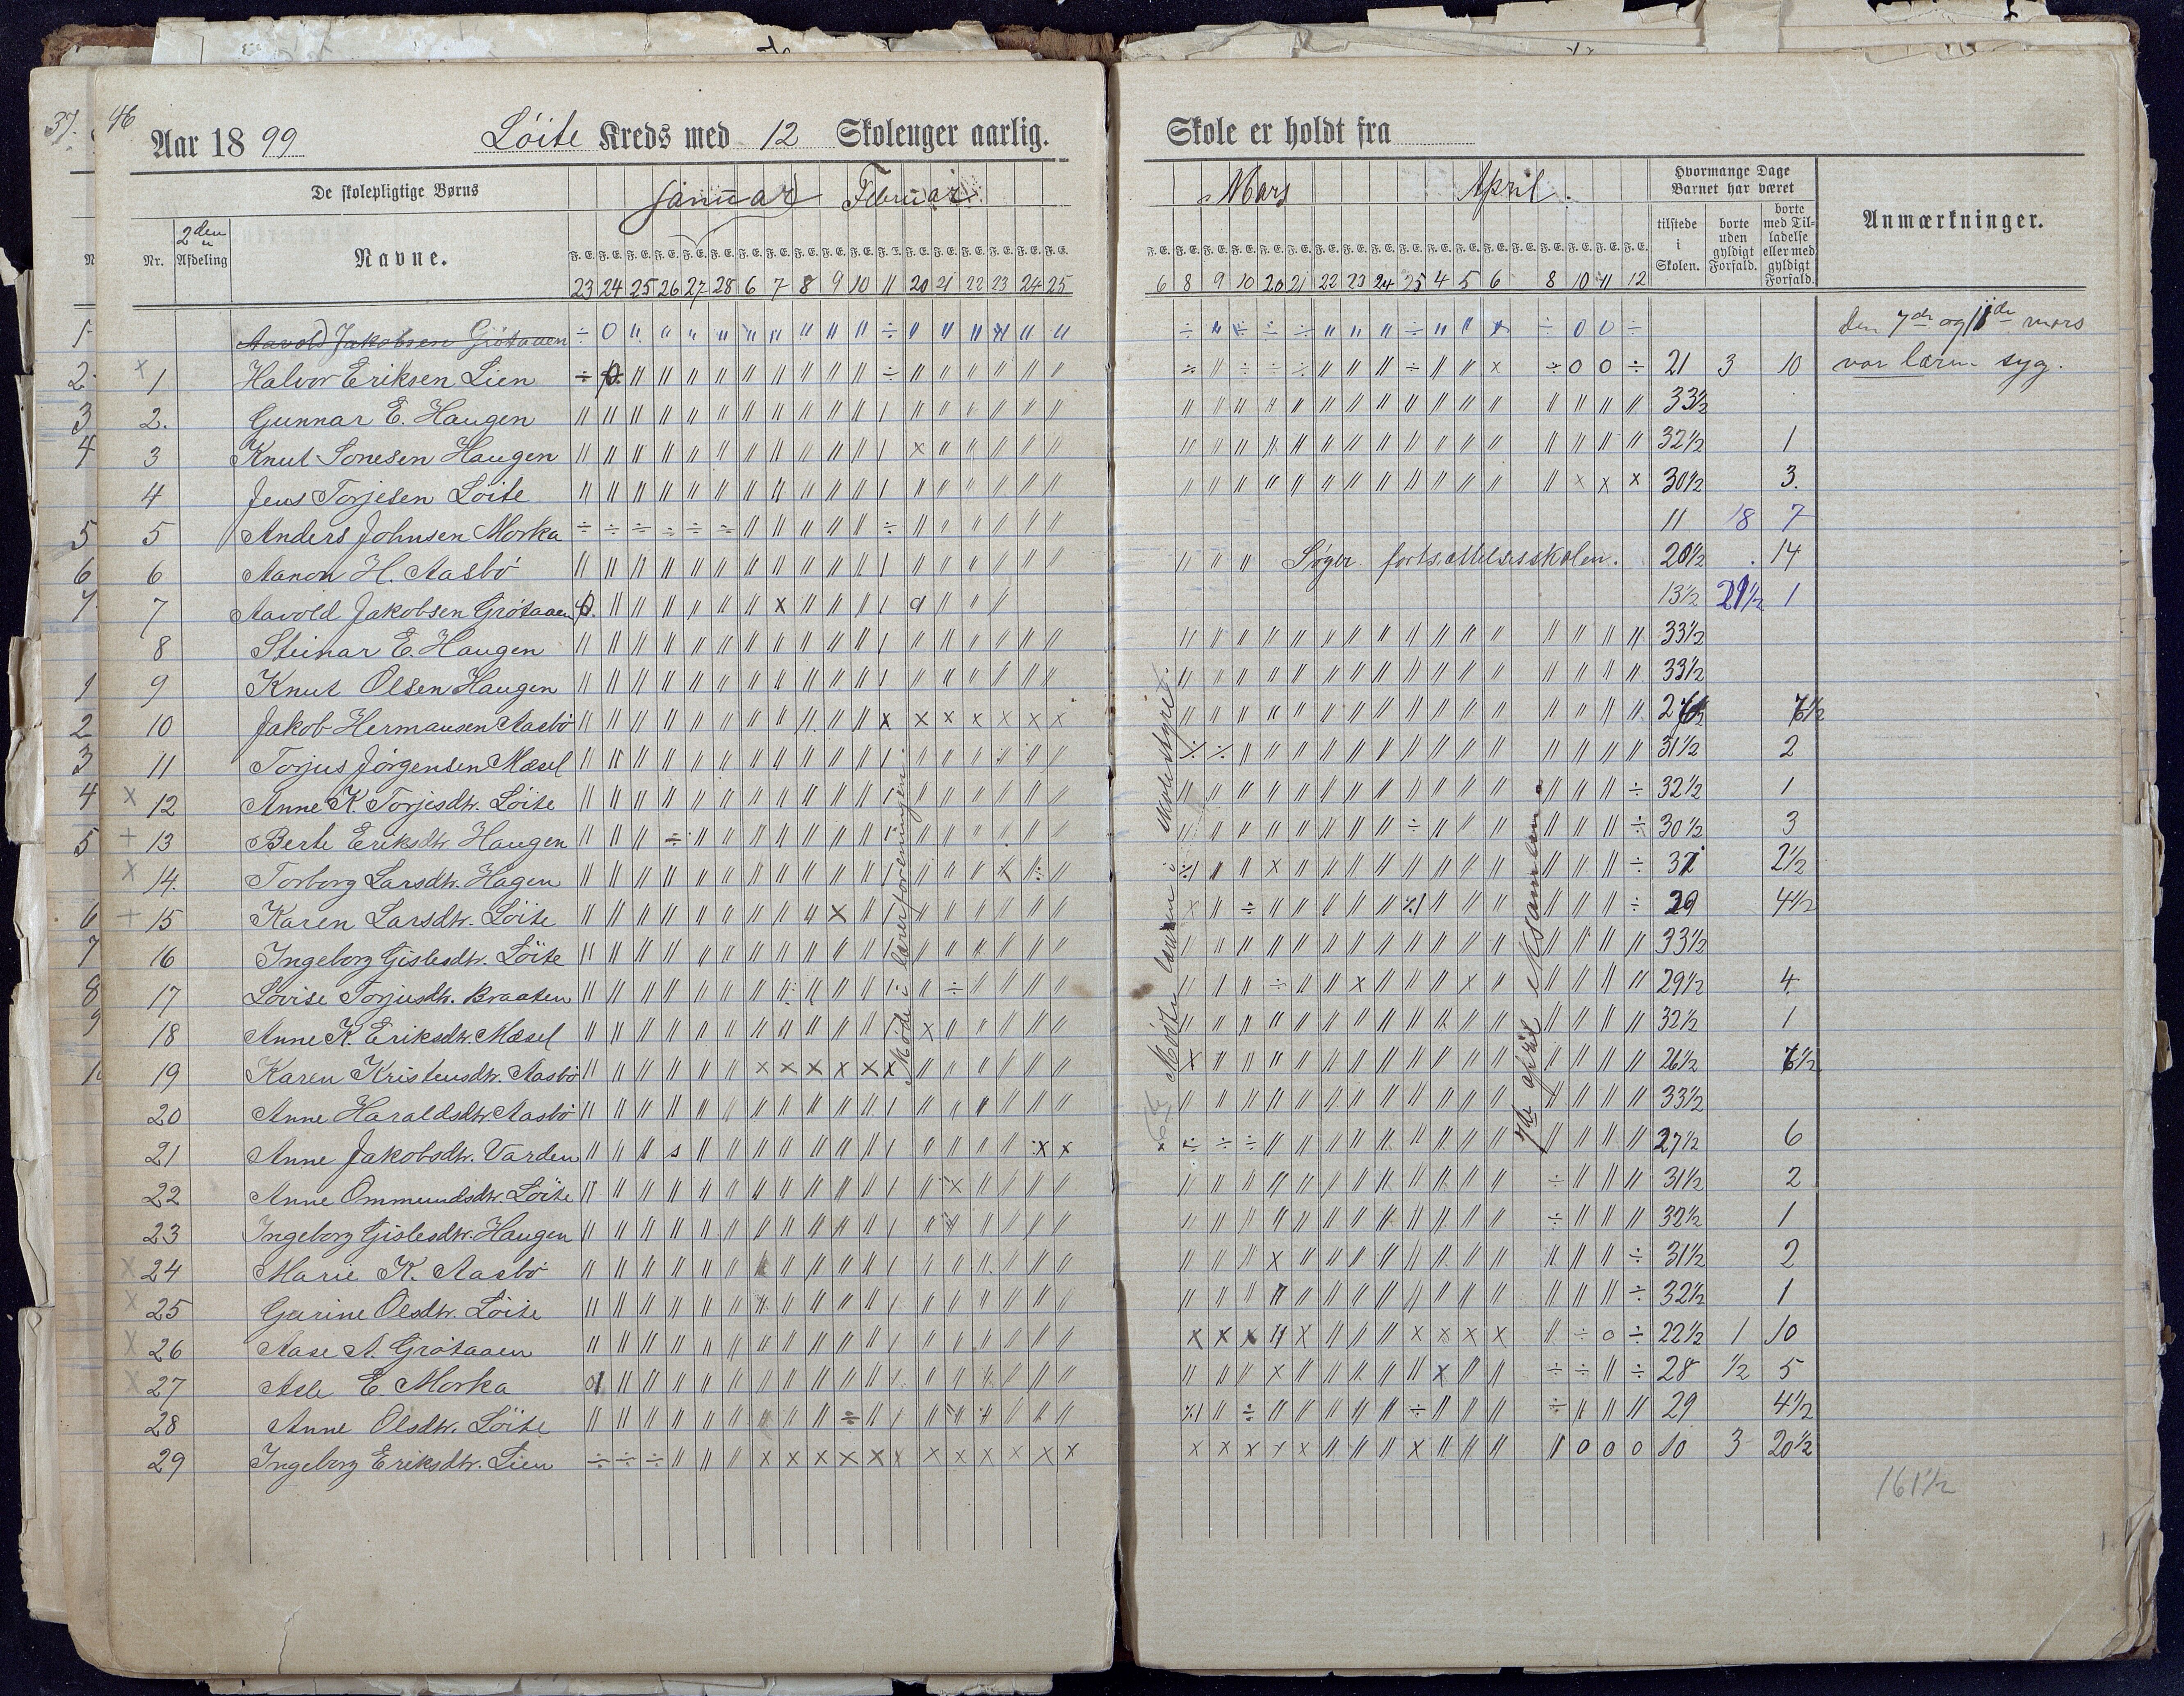 37. 46
Aar 1899 Löite Kreds med 12 Skoleuger aarlig.
De skolepligtige Børns Januar Februar
Nr. 2den Afdeling Navne. F. E. F. E. F. E. F. E. F. E. F. E. F. E. F. E. F. E. F. E. F. E. F. E. F. E. F. E. F. E. F. E. F. E. F. E.
23 24 25 26 27 28 6 7 8 9 10 11 20 21 22 23 24 25
Aavold Jakobsen Grötaaen
1 Halvor Eriksen Lien
2. Gunnar E. Haugen
3 Knut Sonesen Haugen
4 Jens Torjesen Löite
5 Anders Johnsen Morka
6 Aanon H. Aasbö
7 Aavold Jakobsen Grötaaen
8 Steinar E. Haugen
9 Knut Olsen Haugen
10 Jakob Hermansen Aasbö
11 Torjus Jörgensen Mæsel
12 Anne K. Torjesdtr. Löite
13 Berte Eriksdtr. Haugen
14. Torborg Larsdtr. Hagen
15 Karen Larsdtr. Löite
16 Ingeborg Gislesdtr. Löite
17 Lovise Torjusdtr. Braaten
18 Anne K. Eriksdtr. Mæsel
19 Karen Kristensdtr. Aasbö
20 Anne Haraldsdtr. Aasbö
21 Anne Jakobsdtr. Varden
22 Anne Ommundsdtr. Löite
23 Ingeborg Gislesdtr. Haugen
24 Marie K. Aasbö
25 Gurine Olsdtr. Löite
26 Aase A. Grötaaen
27 Asle E. Morka
28 Anne Olsdtr. Löite
29 Ingeborg Eriksdtr. Lien
Möde i lærerforeningen.
Skole er holdt fra
Mars April.
Hvormange Dage Barnet har været
tilstede i Skolen.
borte uden gyldigt Forfald.
borte med Tilladelse eller med gyldigt Forfald.
Anmærkninger.
6 8 9 10 20 21 22 23 24 25 4 5 6 8 10 11 12
den 7de og 11de mars
var læren syg.
21 3 10
33½
32½ 1
30½ 3.
11 18 7
Søger fortsættelsesskolen. 20½ 14
13½ 21½ 1
33½
33½
7½
31½ 2
32½ 1
30½ 3
31 2½
29 4½
33½
29½ 4
32½ 1
26½ 7½
33½
27½ 6
31½ 2
32½ 1
31½ 2
32½ 1
22½ 1 10
28 ½ 5
29 4½
10 3 20½
161½
Mödte læreren i skolestyret.
7de april eksamen.